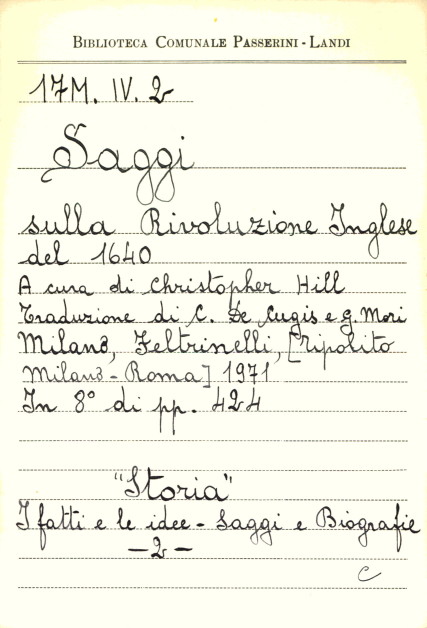 BIBLIOTECA COMUNALE PASSERINI - LANDI
17M. IV. 2
Saggi
sulla Rivoluzione Inglese
del 1640
A cura di Christopher Hill
Traduzione di C. De Cugis e G. Mori
Milano, Feltrinelli, [Tipolito
Milano - Roma] 1971
In 8° di pp. 424
"Storia"
I fatti e le idee - Saggi e Biografie
- 2 -
C